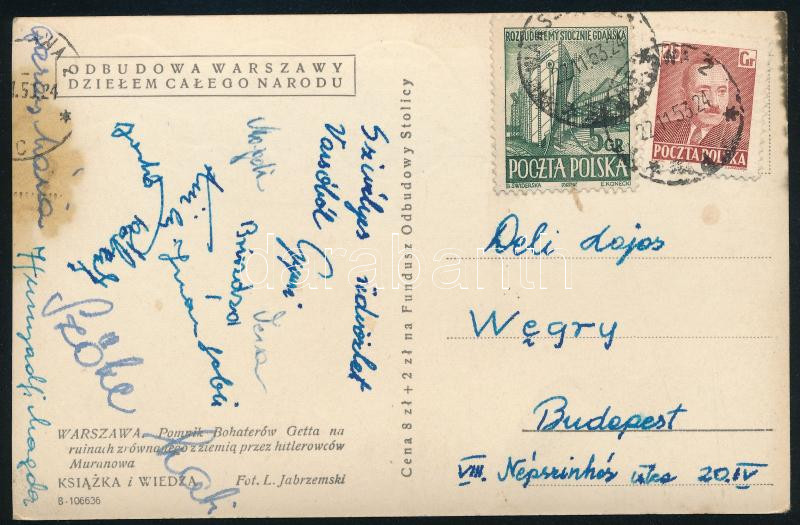 ODBUDOWA WARSZAWY
DZIEŁEM CAŁEGO NARODU
Szívélyes üdvözlet
Varsóból Gyuri
Magdi Brindza Vera
Szőke Kati
Hunyadfi Magda
Mária
WARSZAWA. Pomnik Bohaterów Getta na
ruinach zrównanego z ziemią przez hitlerowców
Muranowa
KSIĄŻKA i WIEDZA Fot. L. Jabrzemski
8-106636
Cena 8 zł + 2 zł na Fundusz Odbudowy Stolicy
ROZBUDUJEMY STOCZNIĘ GDAŃSKĄ
5 GR
POCZTA POLSKA
E. KONECKI
Gr
POCZTA POLSKA
22.11.53.24
Deli Lajos
Węgry
Budapest
VIII. Népszinház utca 20. IV
darabanth